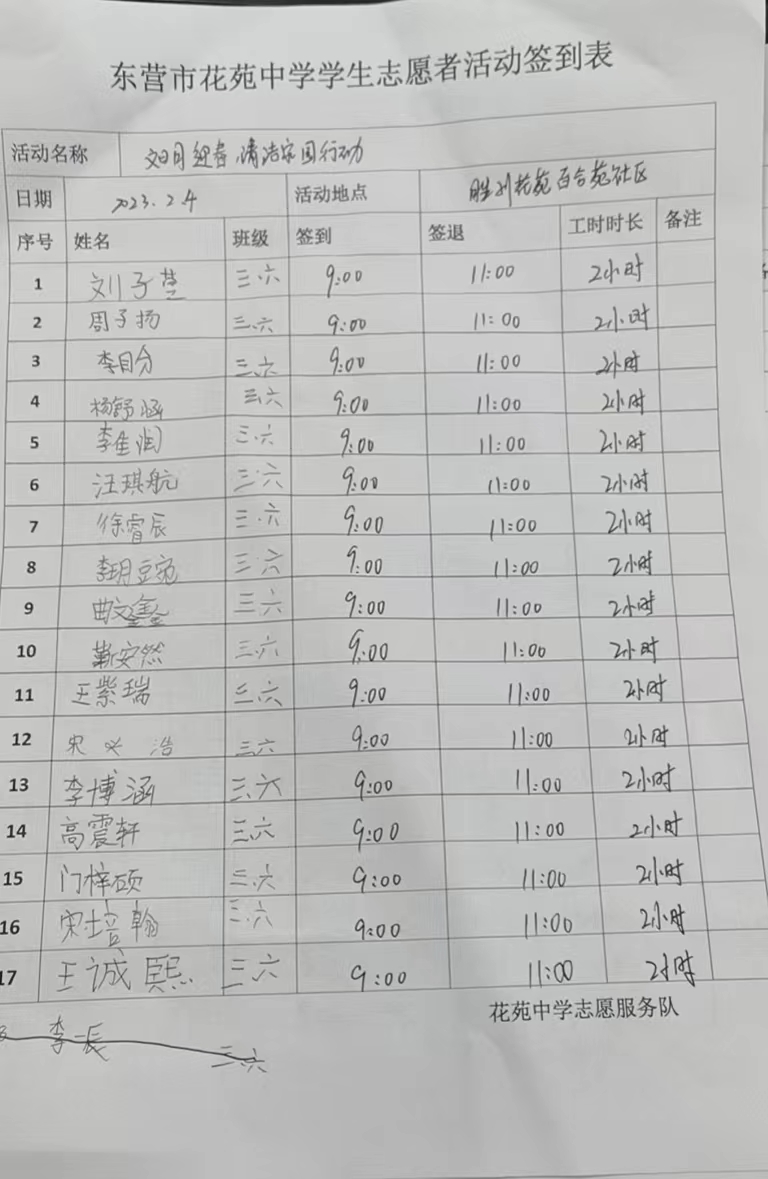 东营市花苑中学学生志愿者活动签到表
活动名称 文明迎春 清洁家园行动
日期 2023.2.4 活动地点 胜利花苑百合苑社区
序号 姓名 班级 签到 签退 工时时长 备注
1 刘子萱 三.六 9:00 11:00 2小时
2 周子扬 三.六 9:00 11:00 2小时
3 李目分 三.六 9:00 11:00 2小时
4 杨舒涵 三.六 9:00 11:00 2小时
5 李佳润 三.六 9:00 11:00 2小时
6 汪琪航 三.六 9:00 11:00 2小时
7 徐睿辰 三.六 9:00 11:00 2小时
8 李玥 三.六 9:00 11:00 2小时
9 曲文鑫 三.六 9:00 11:00 2小时
10 靳安然 三.六 9:00 11:00 2小时
11 王紫瑞 三.六 9:00 11:00 2小时
12 宋义浩 三.六 9:00 11:00 2小时
13 李博涵 三.六 9:00 11:00 2小时
14 高震轩 三.六 9:00 11:00 2小时
15 门梓硕 三.六 9:00 11:00 2小时
16 宋培翰 三.六 9:00 11:00 2小时
17 王诚熙 三.六 9:00 11:00 2小时
花苑中学志愿服务队
李辰 三.六